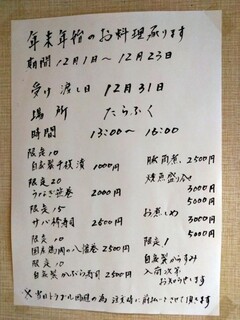 年末年始のお料理承ります
期間 12月1日〜12月23日
受け渡し日 12月31日
場所 たらふく
時間 13:00〜16:00
限定10
自家製千枚漬 1000円
限定20
うなぎ笹巻 2000円
限定15
サバ棒寿司 2500円
限定10
国産鳥肉の八幡巻 2500円
限定10
自家製かぶら寿司 2500円
豚角煮 2500円
焼魚盛り合
3000円
5000円
お煮しめ
3000円
5000円
限定1
自家製からすみ
入荷次第
お知らせします
※当日トラブル回避の為 注文時に前払いとさせて頂きます